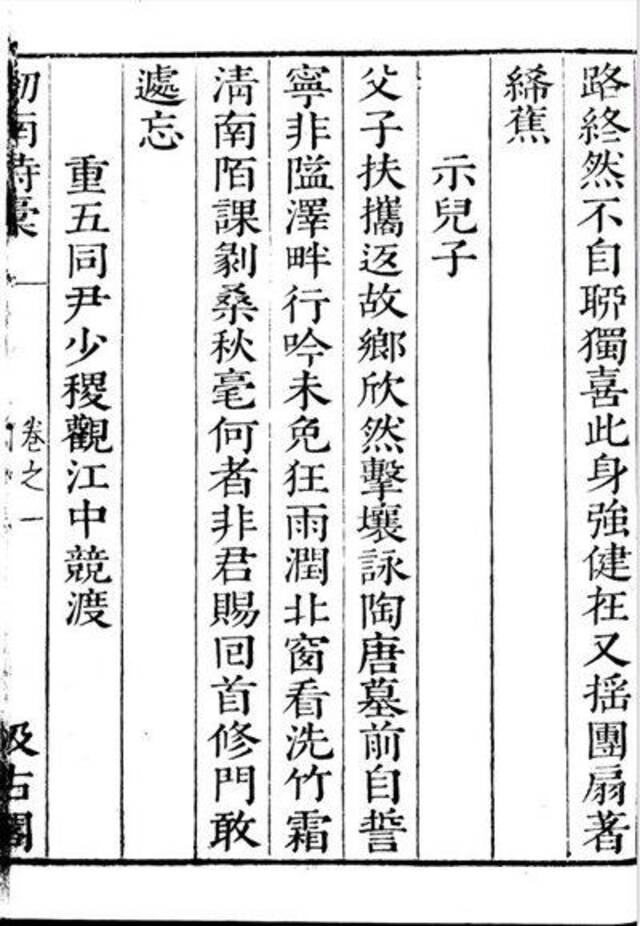 路終然不自聊獨喜此身強健在又搖團扇著
絺蕉
示兒子
父子扶攜返故鄉欣然擊壤詠陶唐墓前自誓
寧非隘澤畔行吟未免狂雨潤北窗看洗竹霜
淸南陌課剝桑秋毫何者非君賜回首修門敢
遽忘
重五同尹少稷觀江中競渡
劒南詩稾 卷之一 汲古閣